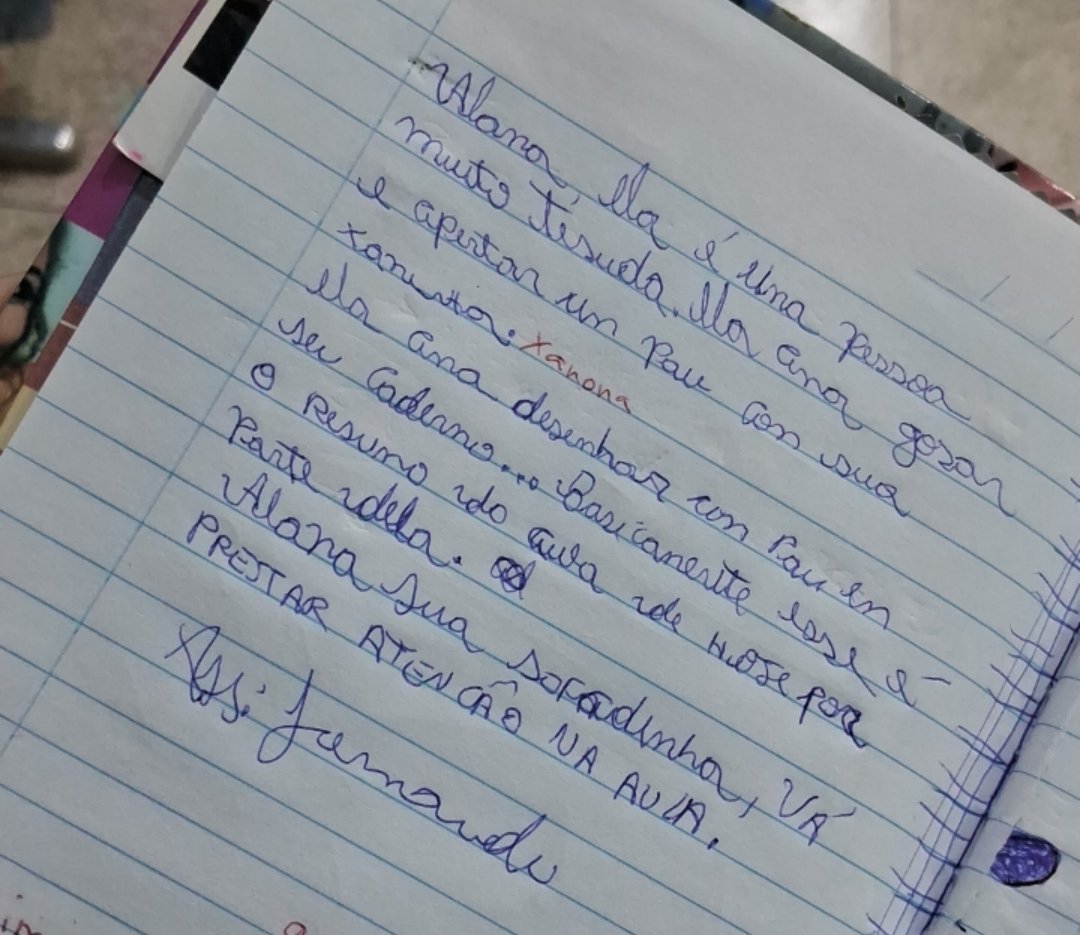 Alana, ela é uma pessoa
muito tesuda. Ela ama gozar
e apertar um pau com sua
xanesta. xanona
Ela ama desenhar um Pau em
seu caderno... Basicamente esse é
o Resumo do aula de Hoje por
Parte dela.
Alana sua safadinha, VÁ
PRESTAR ATENÇÃO NA AULA.
Ass: Fernando